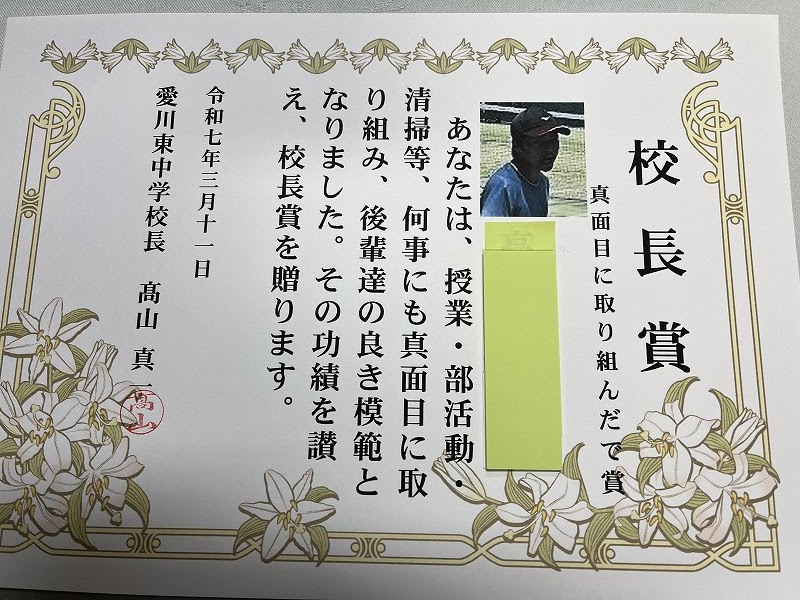 校長賞
真面目に取り組んだで賞
あなたは、授業・部活動・
清掃等、何事にも真面目に取
り組み、後輩達の良き模範と
なりました。その功績を讃
え、校長賞を贈ります。
令和七年三月十一日
愛川東中学校長　髙山　真一
髙山